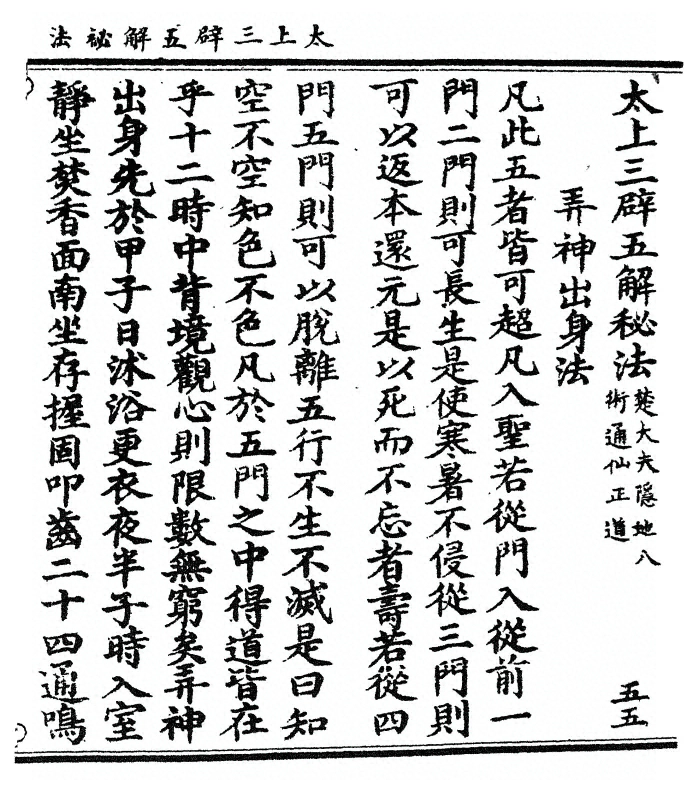 太上三辟五解祕法
太上三辟五解秘法
楚大夫隱地八
術通仙正道
五五
弄神出身法
凡此五者皆可超凡入聖若從門入從前一
門二門則可長生是使寒暑不侵從三門則
可以返本還元是以死而不忘者壽若從四
門五門則可以脫離五行不生不滅是曰知
空不空知色不色凡於五門之中得道皆在
乎十二時中背境觀心則限數無窮矣弄神
出身先於甲子日沭浴更衣夜半子時入室
靜坐焚香面南坐存握固叩齒二十四通鳴